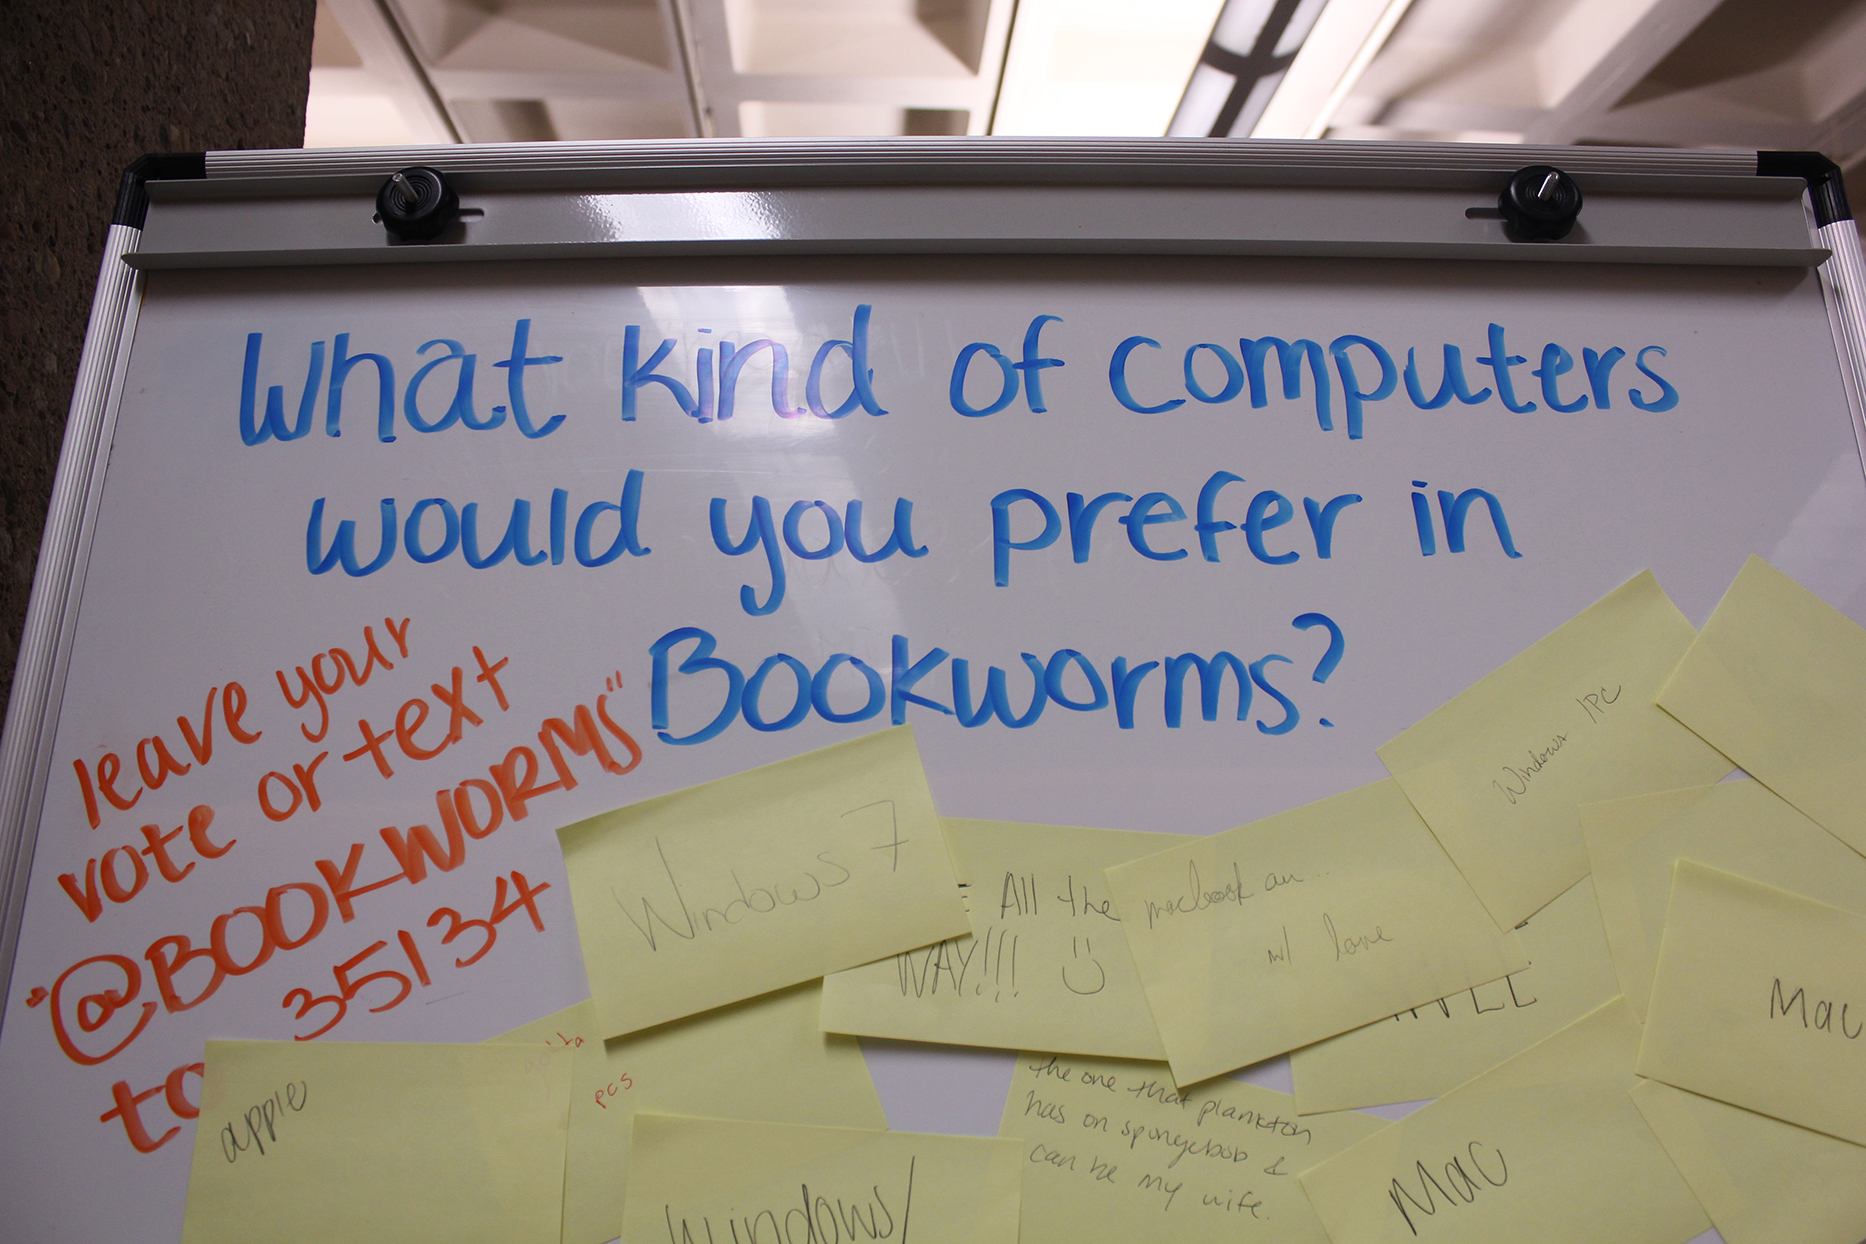 What kind of computers
would you prefer in
Bookworms?
leave your
vote or text
"@BOOKWORMS"
35134
to
Windows 7
All the
WAY!!! :)
macbook air...
w/ love
Windows /PC
Mac
apple
pcs
Windows/
the one that plankton
has on spongebob &
can be my wife.
Mac